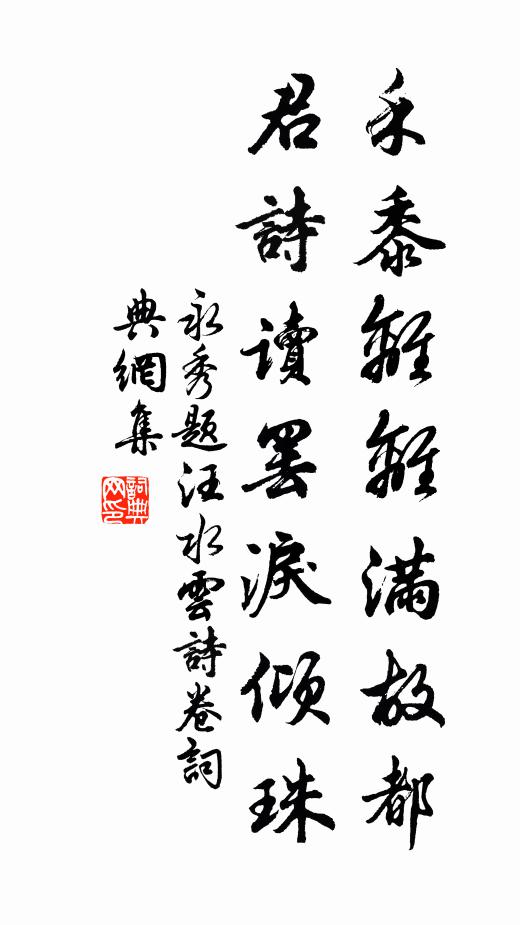 禾黍離離滿故都
君詩讀罷淚傾珠
永秀題汪水雲詩卷詞
典網集
詞典網印